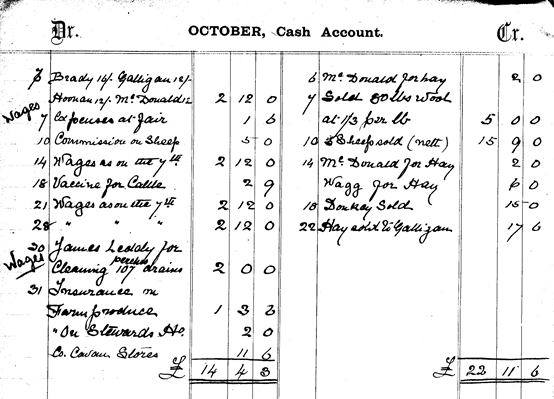 Dr. OCTOBER, Cash Account. Cr.
7 Brady 14/- Galligan 12/-
Wages Hoonan 12/- McDonald 12 2 12 0
7 Expenses at Fair 1 6
10 Commission on Sheep 5 0
14 Wages as on the 7th 2 12 0
18 Vaccine for Cattle 2 9
21 Wages as on the 7th 2 12 0
28 " " " 2 12 0
30 James Leddy for
Wages Cleaning 107 perches drains 2 0 0
31 Insurance on
Farm produce 1 3 6
" On Stewards Ho. 2 0
Co. Cavan Stores 11 6
£ 14 4 3
6 McDonald for hay 2 0
7 Sold 80 lbs Wool
at 1/3 per lb 5 0 0
10 5 Sheep sold (nett) 15 9 0
14 McDonald for Hay 2 0
Wagg for Hay 6 0
18 Donkey Sold 15 0
22 Hay sold to Galligan 17 6
£ 22 11 6